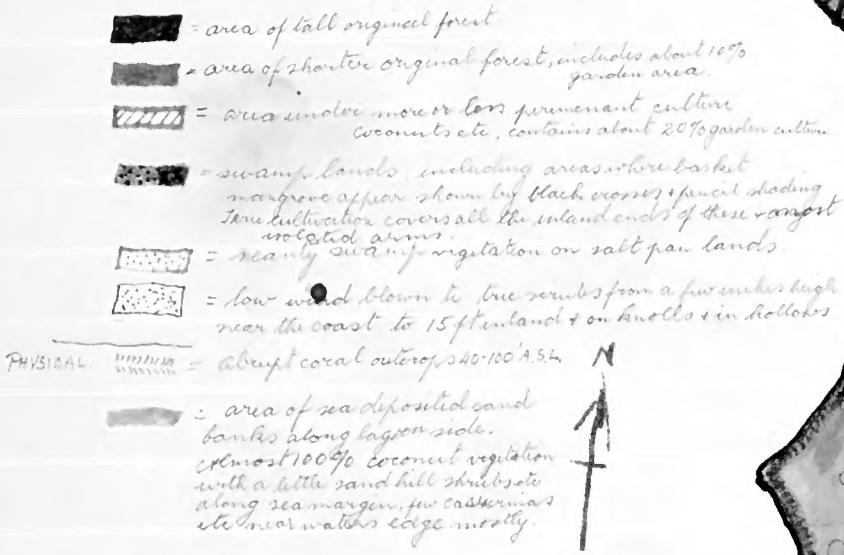 = area of tall original forest.
= area of shorter original forest, includes about 10%
garden area.
= area under more or less permenant culture
coconuts etc, contains about 20% garden culture.
= swamp lands, including areas where basket
mangrove appear shown by black crosses + pencil shading
cultivation covers all the inland ends of these + most
isolated arms.
= scanty swamp vegetation on salt pan lands.
= low wind blown to true scrubs from a few inches high
near the coast to 15 ft inland + on knolls + in hollows
PHYSICAL. = abrupt coral outcrops 40-100' A.S.L.
N
= area of sea deposited sand
banks along lagoon side.
Almost 100% coconut vegetation
with a little sand hill shrubs etc
along sea margin, few casuarinas
etc near waters edge mostly.